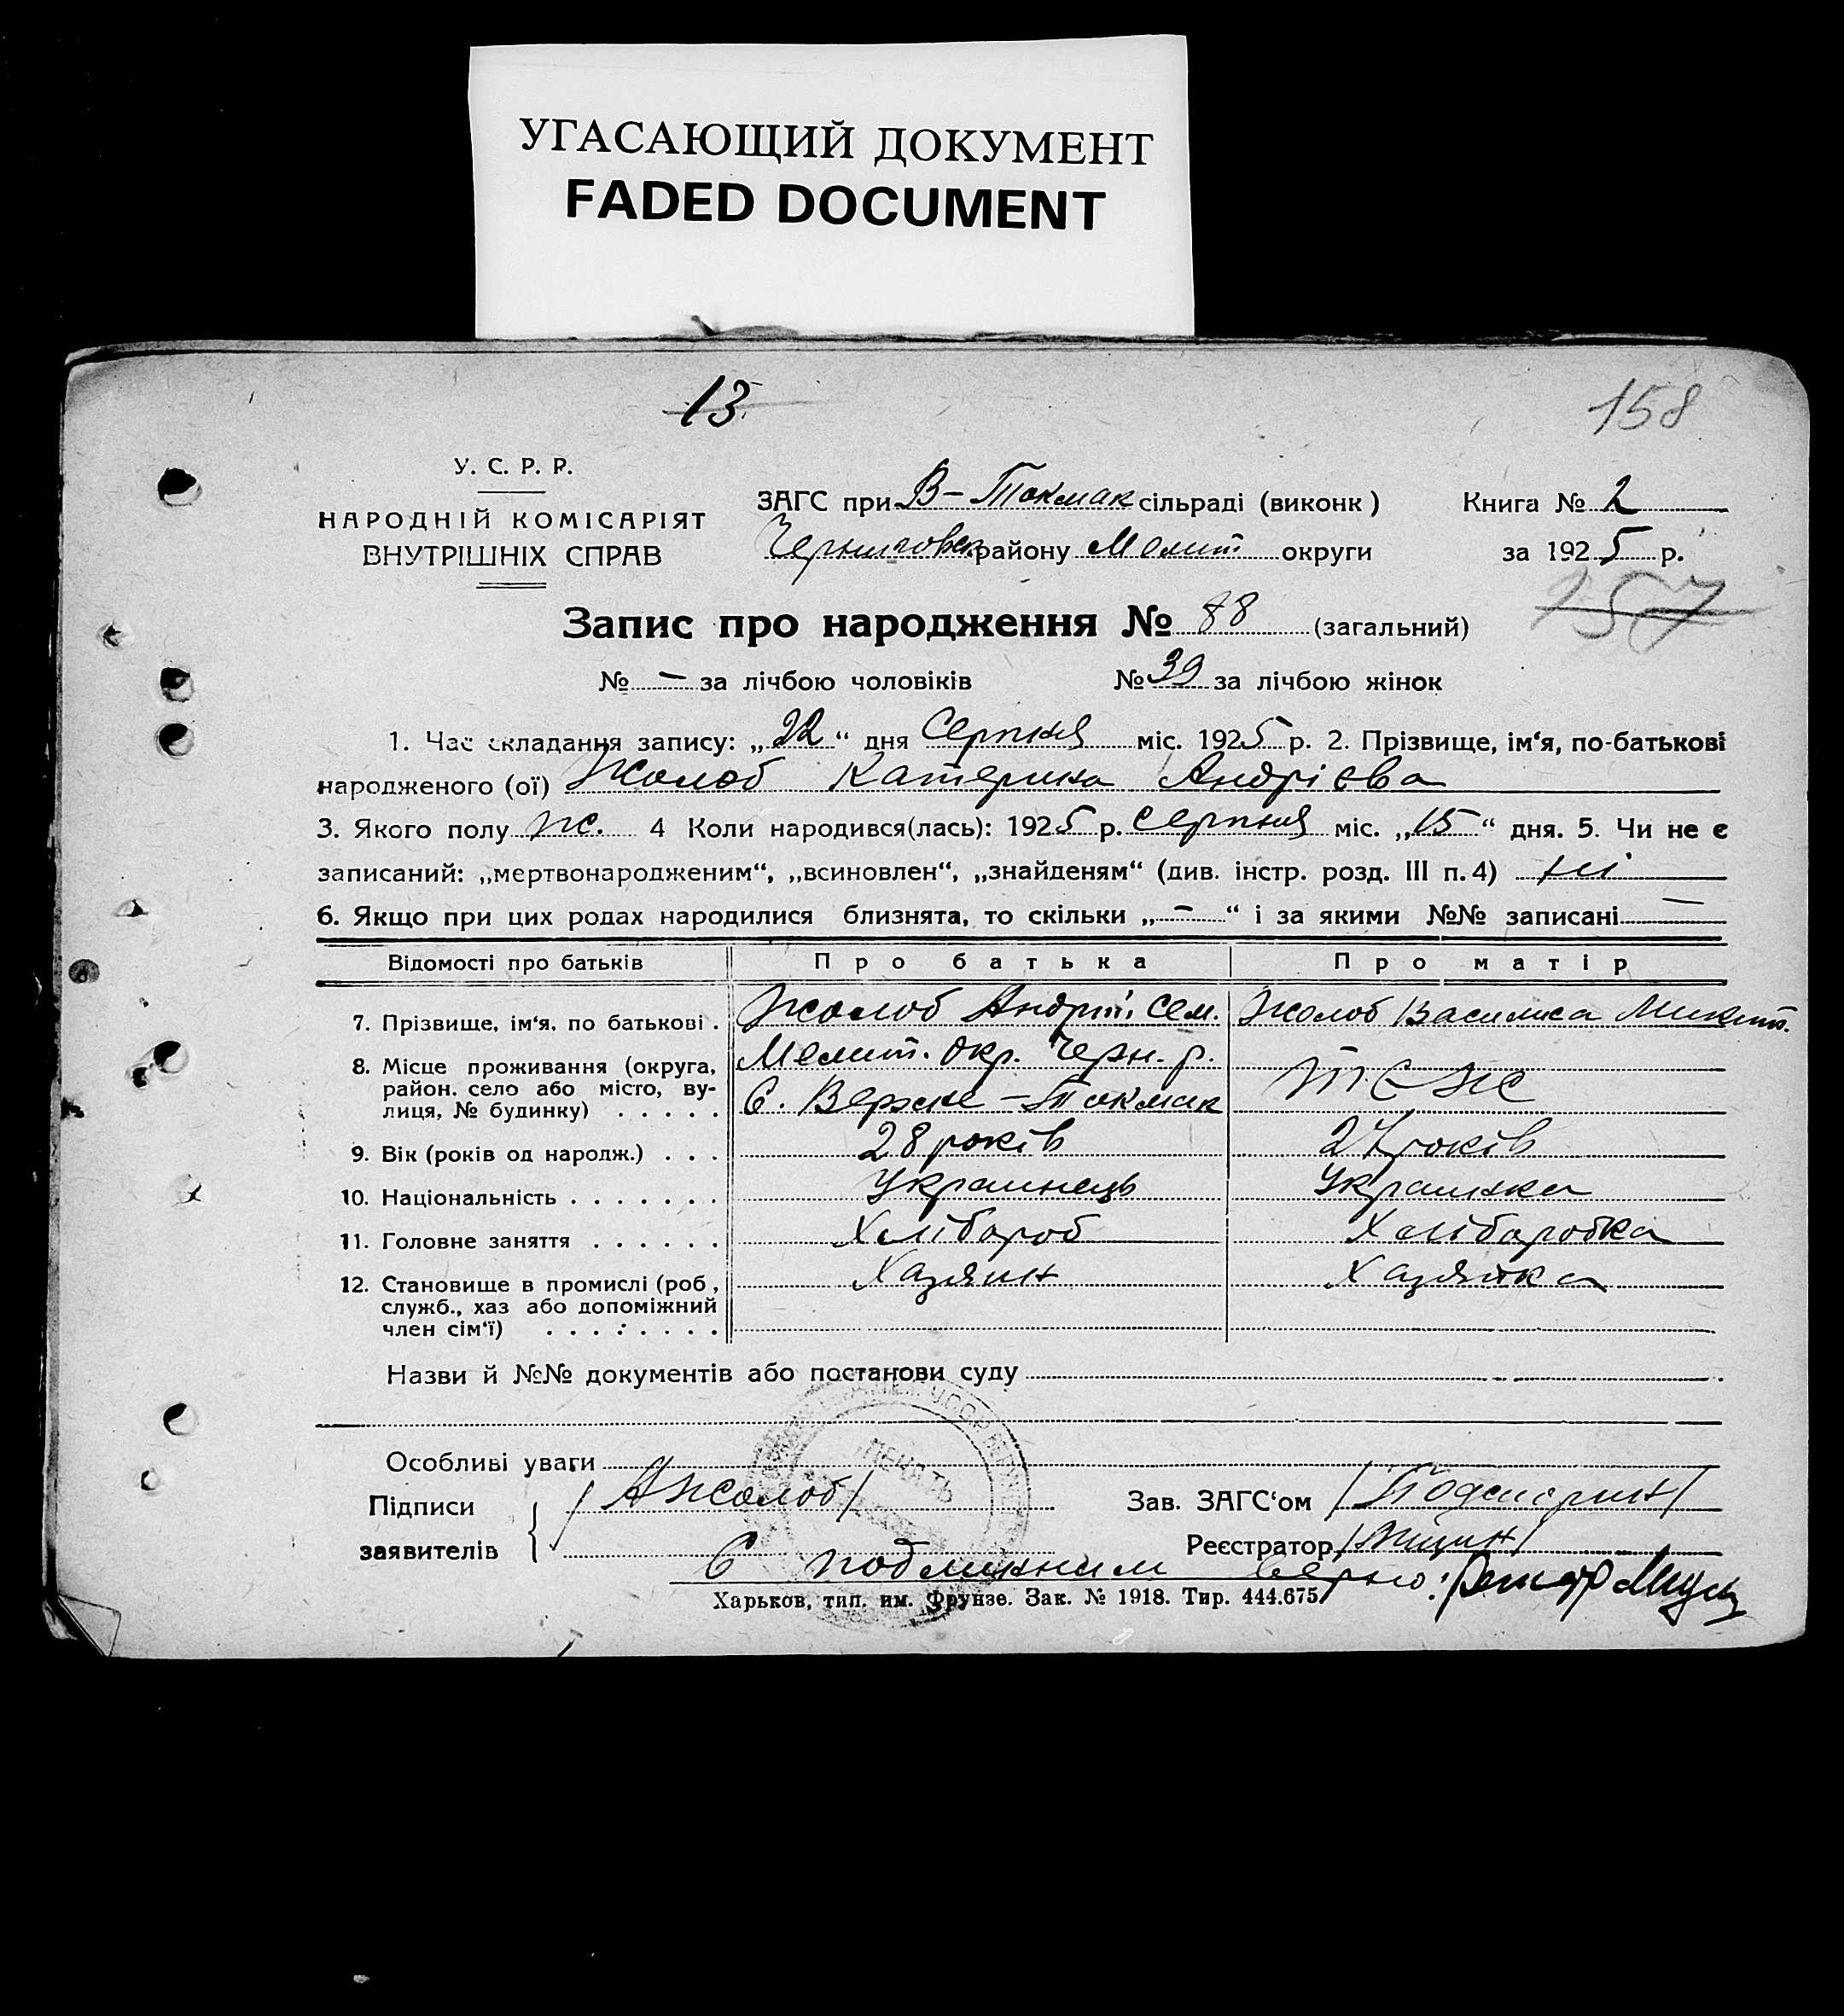 УГАСАЮЩИЙ ДОКУМЕНТ
FADED DOCUMENT
13
158
У. С. Р. Р.
НАРОДНІЙ КОМІСАРІЯТ
ВНУТРІШНІХ СПРАВ
ЗАГС при В-Токмак сільраді (виконк)
Книга № 2
Черниговск району Мелит округи
за 1925 р.
157
Запис про народження № 88 (загальний)
№ – за лічбою чоловіків № 39 за лічбою жінок
1. Час складання запису: „22“ дня Серпня міс. 1925 р. 2. Прізвище, ім‘я, по-батькові
народженого (ої) Жолоб Катерина Андрієва
3. Якого полу ж. 4 Коли народився(лась): 1925 р. Серпня міс. „15“ дня. 5. Чи не є
записаний: „мертвонародженим“, „всиновлен“, „знайденям“ (див. інстр. розд. III п. 4) ні
6. Якщо при цих родах народилися близнята, то скільки „–“ і за якими №№ записані –
Відомості про батьків Про батька Про матір
7. Прізвище, ім‘я, по батькові . Жолоб Андрій Сем. Жолоб Василиса Микит.
8. Місце проживання (округа, Мелит. окр. Черн. р.
район, село або місто, ву- теж
лиця, № будинку) . . . . . С. Верхне-Токмак
9. Вік (років од народж.) . . . 28 років 27 років
10. Національність . . . . . . . Украинець Украинка
11. Головне заняття . . . . . . Хлібороб Хліборобка
12. Становище в промислі (роб., Хазяин Хазяйка
служб., хаз або допоміжний
член сім‘ї) . . . . . . . .
Назви й №№ документів або постанови суду
Особливі уваги
Підписи /АЖолоб/ Зав. ЗАГС‘ом
заявителів Реєстратор
С подлинним верно:
Харьков, тип. им. Фрунзе. Зак. № 1918. Тир. 444.675
ПЕЧАТЬ